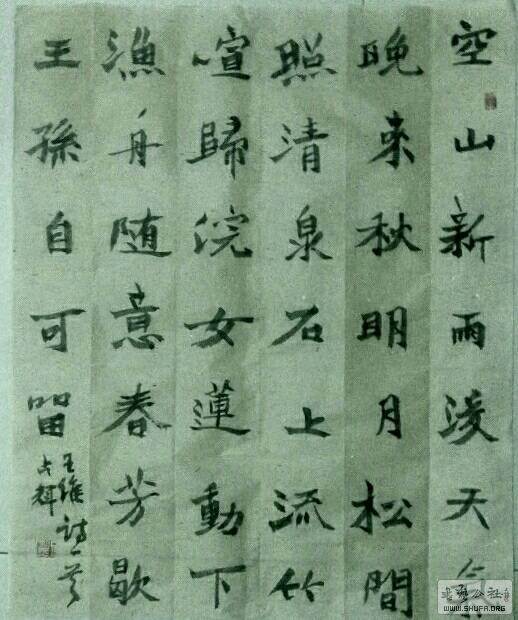 空山新雨後天氣
晚來秋明月松間
照清泉石上流竹
喧歸浣女蓮動下
漁舟随意春芳歇
王孫自可留
王維詩一首
书法公社
WWW.SHUFA.ORG